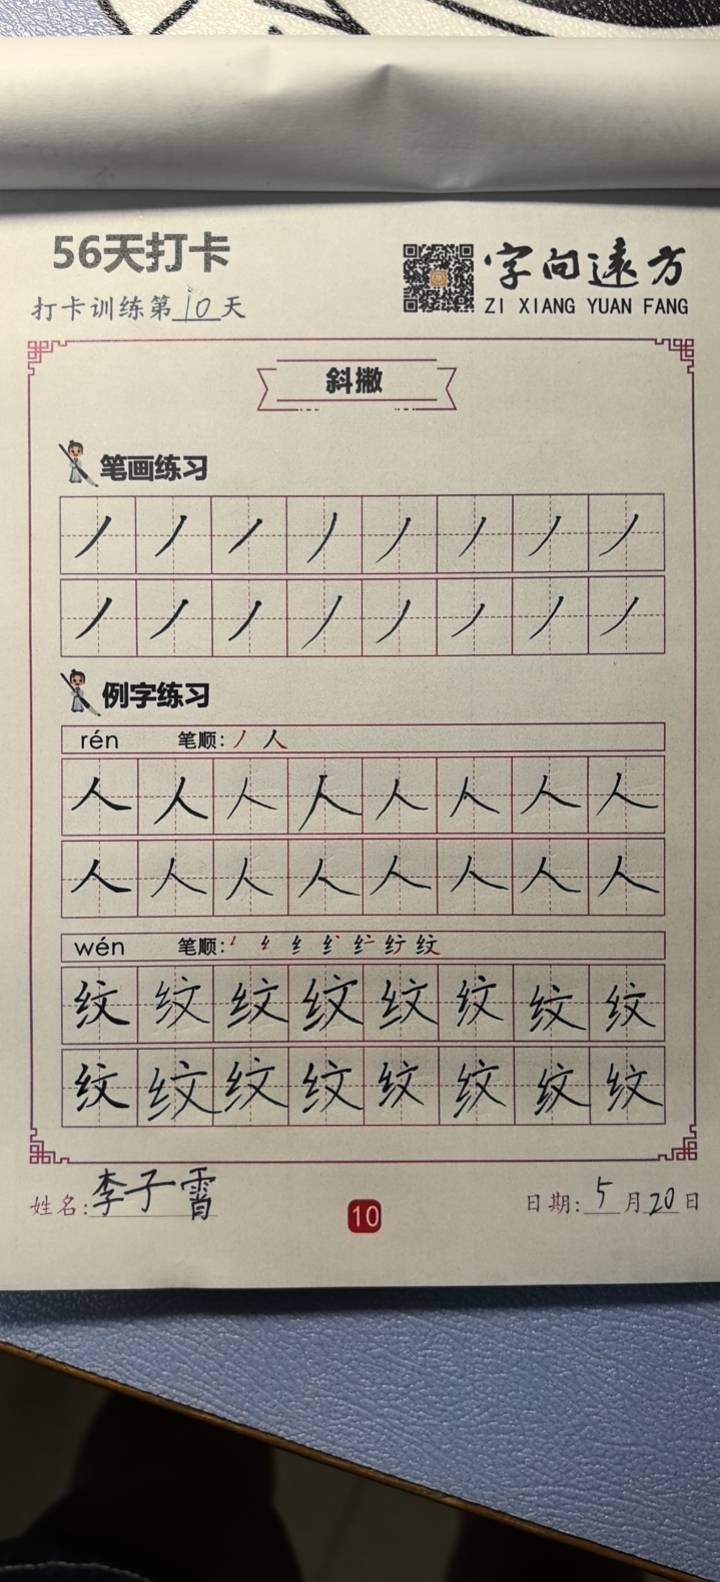 56天打卡
打卡训练第10天
字向遠方
ZI XIANG YUAN FANG
斜撇
笔画练习
丿丿丿丿丿丿丿丿
丿丿丿丿丿丿丿丿
例字练习
rén 笔顺: 丿 人
人人人人人人人人
人人人人人人人人
wén 笔顺: 纹
纹纹纹纹纹纹纹纹
纹纹纹纹纹纹纹纹
姓名:李子霄
10
日期:5月20日